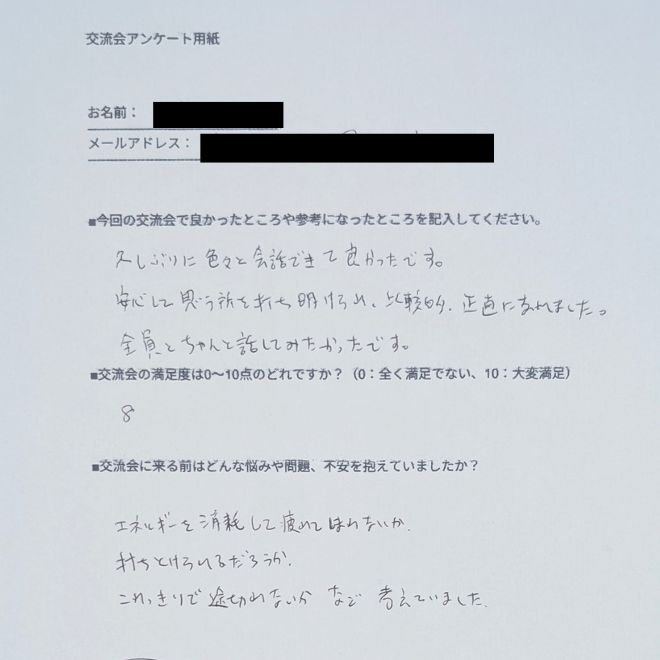 交流会アンケート用紙
お名前：
メールアドレス：
■今回の交流会で良かったところや参考になったところを記入してください。
久しぶりに色々と会話できて良かったです。
安心して思う所を打ち明けられ、比較的、正直になれました。
全員とちゃんと話してみたかったです。
■交流会の満足度は0〜10点のどれですか？（0：全く満足でない、10：大変満足）
8
■交流会に来る前はどんな悩みや問題、不安を抱えていましたか？
エネルギーを消耗して疲れてしまわないか、
打ちとけられるだろうか、
これっきりで途切れないか など 考えていました。